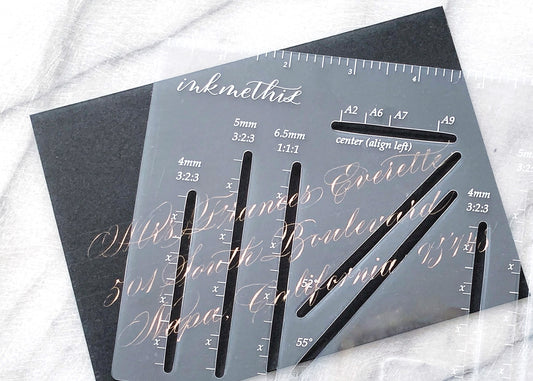 2 3 4
inkmethis
A2 A6 A7 A9
center (align left)
5mm
3:2:3
6.5mm
1:1:1
4mm
3:2:3
4mm
3:2:3
x x x x x
Mrs Frances Everette
501 South Boulevard
Napa, California
52°
55°